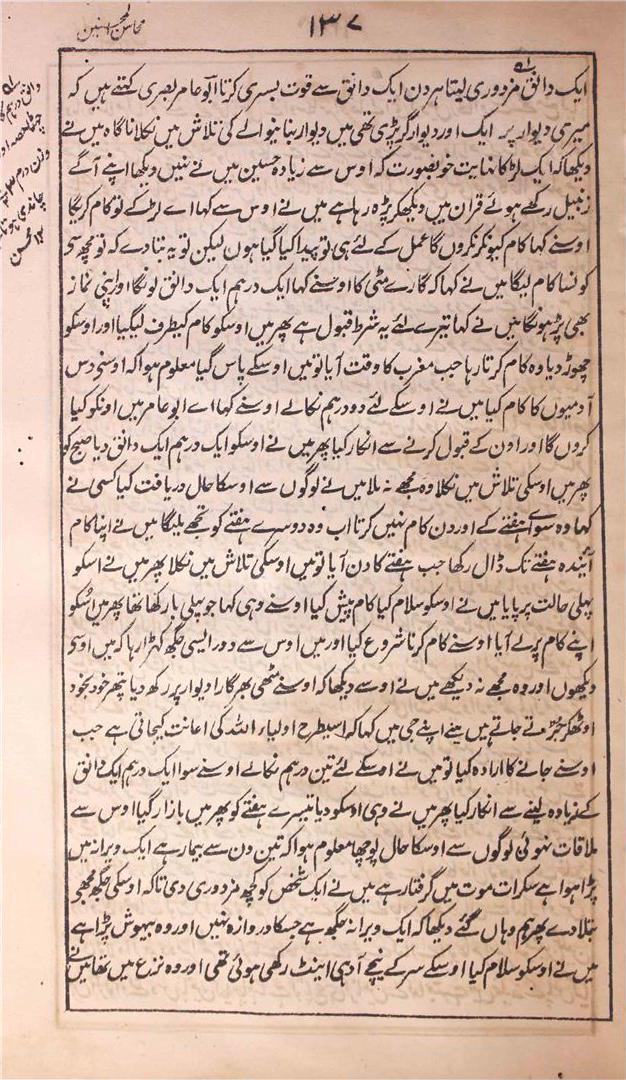 محاسن المحسنین
۱۳۷
ایک دانق مزدوری لیتا ہر دن ایک دانق سے قوت بسری کرتا ابو عامر بصری کہتے ہیں کہ
میری دیوار پر ایک اور دیوار گر پڑی تھی میں دیوار بنانیوالے کی تلاش میں نکلا ناگاہ میں نے
دیکھا کہ ایک لڑکا نہایت خوبصورت کہ اوس سے زیادہ حسین میں نے نہیں دیکھا اپنے آگے
زنبیل رکھے ہوئے قران میں دیکھکر پڑہ رہا ہے میں نے اوس سے کہا اے لڑکے تو کام کریگا
اوسنے کہا کام کیونکر نکروں گا عمل کے لئے ہی تو پیدا کیا گیا ہوں لیکن تو یہ بتا دے کہ تو مجھسی
کونسا کام لیگا میں نے کہا کہ گارے مٹی کا اوسنے کہا ایک درہم ایک دانق لونگا اور اپنی نماز
بھی پڑہونگا میں نے کہا تیرے لئے یہ شرط قبول ہے پھر میں اوسکو کام کیطرف لیگیا اور اوسکو
چھوڑ دیا وہ کام کرتا رہا جب مغرب کا وقت آیا تو میں اوسکے پاس گیا معلوم ہوا کہ اوسنی دس
آدمیوں کا کام کیا میں نے اوسکے لئے دو درہم نکالے اوسنے کہا اے ابو عامر میں اونکو کیا
کروں گا اور اون کے قبول کرنے سے انکار کیا پھر میں نے اوسکو ایک درہم ایک دانق دیا صبح کو
پھر میں اوسکی تلاش میں نکلا وہ مجھے نہ ملا میں نے لوگوں سے اوسکا حال دریافت کیا کسی نے
کہا وہ سوائے ہفتے کے اور دن کام نہیں کرتا اب وہ دوسرے ہفتے کو تجھے ملیگا میں نے اپنا کام
آیندہ ہفتے تک ڈال رکھا جب ہفتے کا دن آیا تو میں اوسکی تلاش میں نکلا پھر میں نے اسکو
پہلی حالت پر پایا میں نے اوسکو سلام کیا کام پیش کیا اوسنے وہی کہا جو پہلی بار کہا تھا پھر میں اسکو
اپنے کام پر لے آیا اوسنے کام کرنا شروع کیا اور میں اوس سے دور ایسی جگہ کھڑا رہا کہ میں اوسی
دیکھوں اور وہ مجھے نہ دیکھے میں نے اوسے دیکھا کہ اوسنے مٹھی بھر گارا دیوار پر رکھ دیا پتھر خود بخود
اوٹھکر جڑتے جاتے ہیں مینے اپنے جی میں کہا کہ اسیطرح اولیاء اللہ کی اعانت کیجاتی ہے جب
اوسنے جانے کا ارادہ کیا تو میں نے اوسکے لئے تین درہم نکالے اوسنے سوا ایک درہم ایک دانق
کے زیادہ لینے سے انکار کیا پھر میں نے وہی اوسکو دیا تیسرے ہفتے کو پھر میں بازار گیا اوس سے
ملاقات نہوئی لوگوں سے اوسکا حال پوچھا معلوم ہوا کہ تین دن سے بیمار ہے ایک ویرانہ میں
پڑا ہوا ہے سکرات موت میں گرفتار ہے میں نے ایک شخص کو کچھ مزدوری دی تاکہ اوسکی جگہ مجھی
بتلا دے پھر ہم وہاں گئے دیکھا کہ ایک ویرانہ جگہ ہے جسکا دروازہ نہیں اور وہ بیہوش پڑا ہے
میں نے اوسکو سلام کیا اوسکے سر کے نیچے آدہی اینٹ رکھی ہوئی تھی اور وہ نزع میں تھا میں نے
دانق درہم کا
چھٹا حصہ اور
وزن درہم
چاندی ہوتا
۱۲ محسن